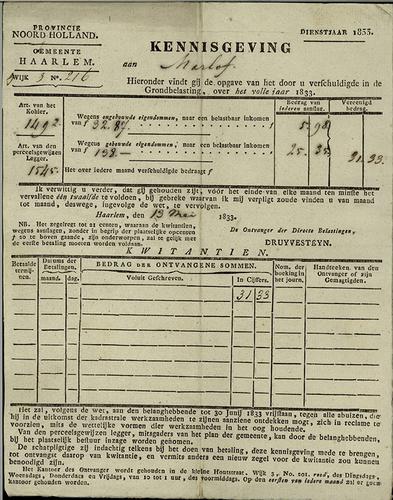 PROVINCIE
NOORD-HOLLAND.
GEMEENTE
HAARLEM.
WIJK 3 No. 216
DIENSTJAAR 1833.
KENNISGEVING
aan
Hieronder vindt gij de opgave van het door u verschuldigde in de
Grondbelasting, over het volle jaar 1833.
Art. van het
Kohier.
1492.
Art. van den
perceelsgewijzen
Legger.
1545.
Bedrag van
iederen aanslag.
Vereenigd
bedrag.
Wegens ongebouwde eigendommen, naar een belastbaar inkomen
van f 32.87
5.98
Wegens gebouwde eigendommen, naar een belastbaar inkomen
van f 138.—
25.35
31.33.
Het over iedere maand verschuldigde bedraagt f
Ik verwittig u verder, dat gij gehouden zijt, vóór het einde van elke maand ten minste het
vervallene één twaalfde te voldoen, bij gebreke waarvan ik mij verpligt zoude vinden u van maand
tot maand, deswege, ingevolge de wet, te vervolgen.
Haarlem, den 13 Mei 1833.
NB. Het zegelregt tot 23 centen, waaraan de kwitantien,
wegens aanslagen, zonder in begrip der plaatselijke opcenten
f 20 te boven gaande, zijn onderworpen, zal te gelijk met
de eerste betaling moeten worden voldaan.
De Ontvanger der Directe Belastingen,
DRUYVESTEYN.
KWITANTIEN.
Betaalde
termijnen.
Datums der
Betalingen.
maand. dag.
BEDRAG DER ONTVANGENE SOMMEN.
Voluit Geschreven.
In Cijfers.
Nom. der
boeking in
het journ.
Handteeken. van den
Ontvanger of zijn
Gemagtigden.
31 33
Het zal, volgens de wet, aan den belanghebbende tot 30 Junij 1833 vrijstaan, tegen alle abuizen, die
hij in de uitkomst der kadastrale werkzaamheden te zijnen aanziene ontdekken mogt, zich in reclame te
voorzien, mits de wettelijke vormen dier werkzaamheden in het oog houdende.
Van den perceelsgewijzen legger, mitsgaders van het plan der gemeente, kan door de belanghebbenden,
bij het plaatselijk bestuur inzage worden genomen.
De schatpligtige zij indachtig telken bij het doen van betaling, deze kennisgeving mede te brengen,
om ontvangst daarop van kwitantie, en vermits anders een nieuw zegel voor de kwitantie zou kunnen
benoodigd zijn.
Het Kantoor des Ontvanger wordt gehouden in de kleine Houtstraat, Wijk 3, No. 101. rood, des Dingsdags,
Woensdags, Donderdags en Vrijdags, van 10 tot 1 ure, des voormiddags. Op den eersten van iedere maand zal er geen
kantoor gehouden worden.